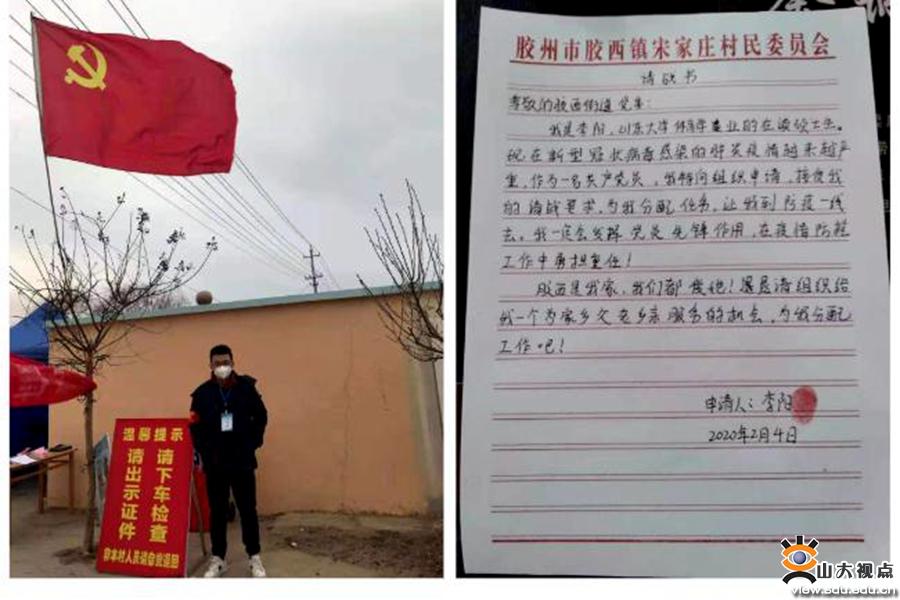 温馨提示
请下车检查
请出示证件
非本村人员请自觉返回
胶州市胶西镇宋家庄村民委员会
请战书
尊敬的胶西街道党委:
我是李阳,山东大学体育学专业的在读硕士生。
现在新型冠状病毒感染的肺炎疫情越来越严
重,作为一名共产党员,我特向组织申请,接受我
的请战要求,为我分配任务,让我到防疫一线
去。我一定会发挥党员先锋作用,在疫情防控
工作中勇担重任!
胶西是我家,我们都爱她!恳请组织给
我一个为家乡父老乡亲服务的机会,为我分配
工作吧!
申请人:李阳
2020年2月4日
山大视点
view.sdu.edu.cn